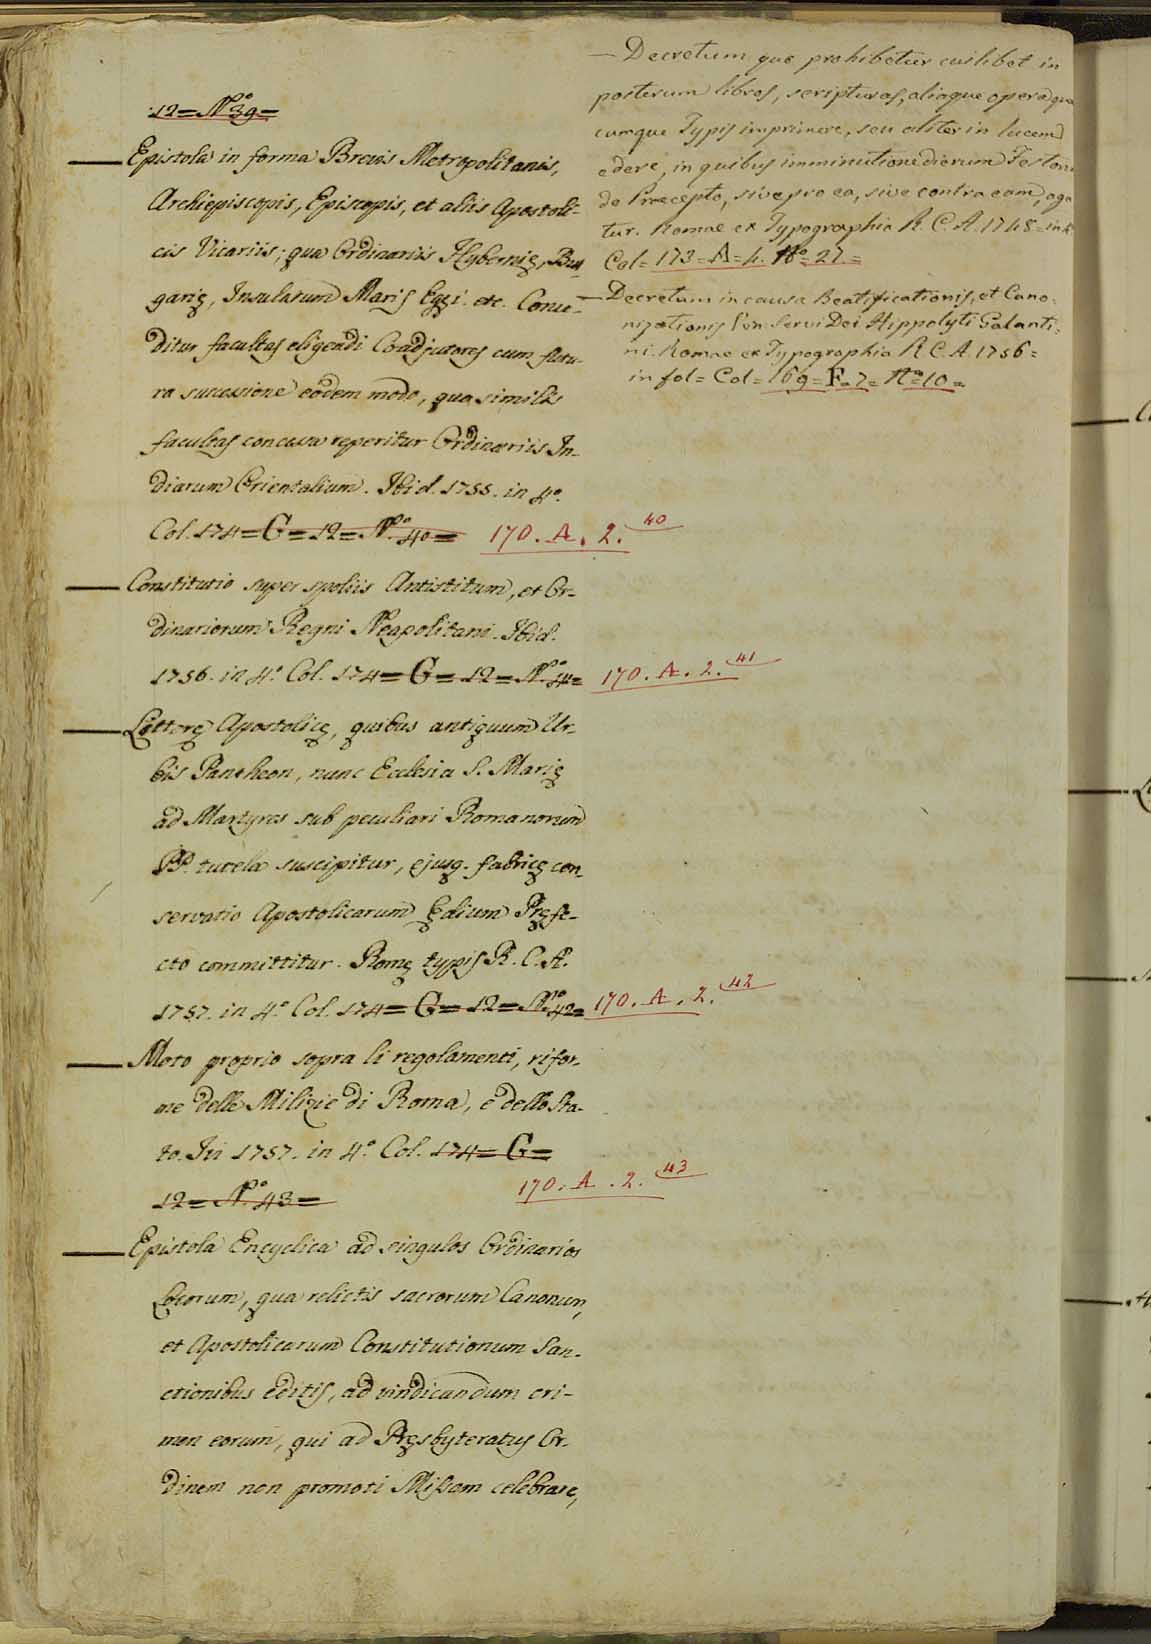 12 = N.º 39 =
— Epistola in forma Brevis Metropolitanis,
Archiepiscopis, Episcopis, et aliis Apostoli-
cis Vicariis; qua Ordinariis Hybernię, Bul-
garię, Insularum Maris Egęi. etc. Conce-
ditur facultas eligendi Coadjutores cum futu-
ra successione eodem modo, quo similis
facultas concessa reperitur Ordinariis In-
diarum Orientalium. Ibid. 1755. in 4º.
Col. 174 = G = 12 = N.º 40 = 170. A. 2. 40
— Constitutio super spoliis Antistitum, et Or-
dinariorum Regni Neapolitani. Ibid.
1756. in 4.º Col. 174 = G = 12 = N.º 41 = 170. A. 2. 41
— Litterę Apostolicę, quibus antiquum Ur-
bis Pantheon, nunc Ecclesia S. Marię
ad Martyres sub peculiari Romanorum
PP. tutela suscipitur, ejusq. fabricę con-
servatio Apostolicarum Ędium Pręfe-
cto committitur. Romę typis R. C. A.
1757. in 4.º Col. 174 = G = 12 = N.º 42 = 170. A. 2. 42
— Moto proprio sopra li regolamenti, rifor-
me delle Milizie di Roma, e dello Sta-
to. Ivi 1757. in 4.º Col. 174 = G =
12 = N.º 43 = 170. A. 2. 43
— Epistola Encyclica ad singulos Ordinarios
Locorum, qua relictis sacrorum Canonum,
et Apostolicarum Constitutionum San-
ctionibus editis, ad vindicandum cri-
men eorum, qui ad Pręsbyteratus Or-
dinem non promoti Missam celebrare,
— Decretum quo prohibetur cuilibet in
posterum libros, scripturas, aliaque opera quæ
cumque Typis imprimere, seu aliter in lucem
edere, in quibus imminutione dierum Festoru
de Præcepto, sive pro ea, sive contra eam, aga
tur. Romae ex Typographia R. C. A. 1748 = in 4
Col = 173 = A = 4. Nº = 27. =
— Decretum in causa Beatificationis, et Cano-
nizationis Ven. Servi Dei Hippolyti Galanti-
ni. Romae ex Typographia R. C. A. 1756 =
in fol = Col = 169 = F = 7 = Nº = 10 =